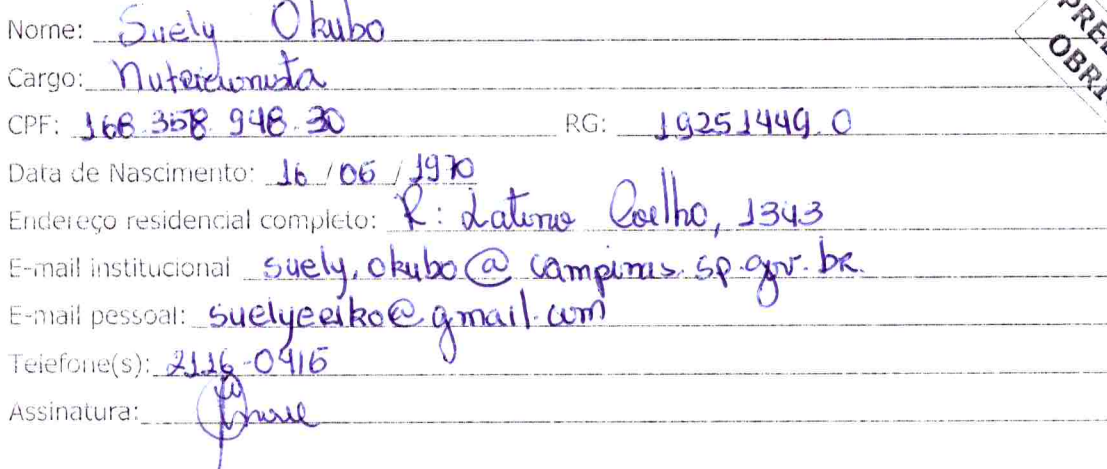 PREE
OBRI
Nome: Suely Okubo
Cargo: Nutricionista
CPF: 168.358.948.30 RG: 19251449.0
Data de Nascimento: 16 / 06 / 1970
Endereço residencial completo: R: Latino Coelho, 1343
E-mail institucional suely.okubo@campinas.sp.gov.br
E-mail pessoal: suelyeeiko@gmail.com
Telefone(s): 2116-0416
Assinatura: